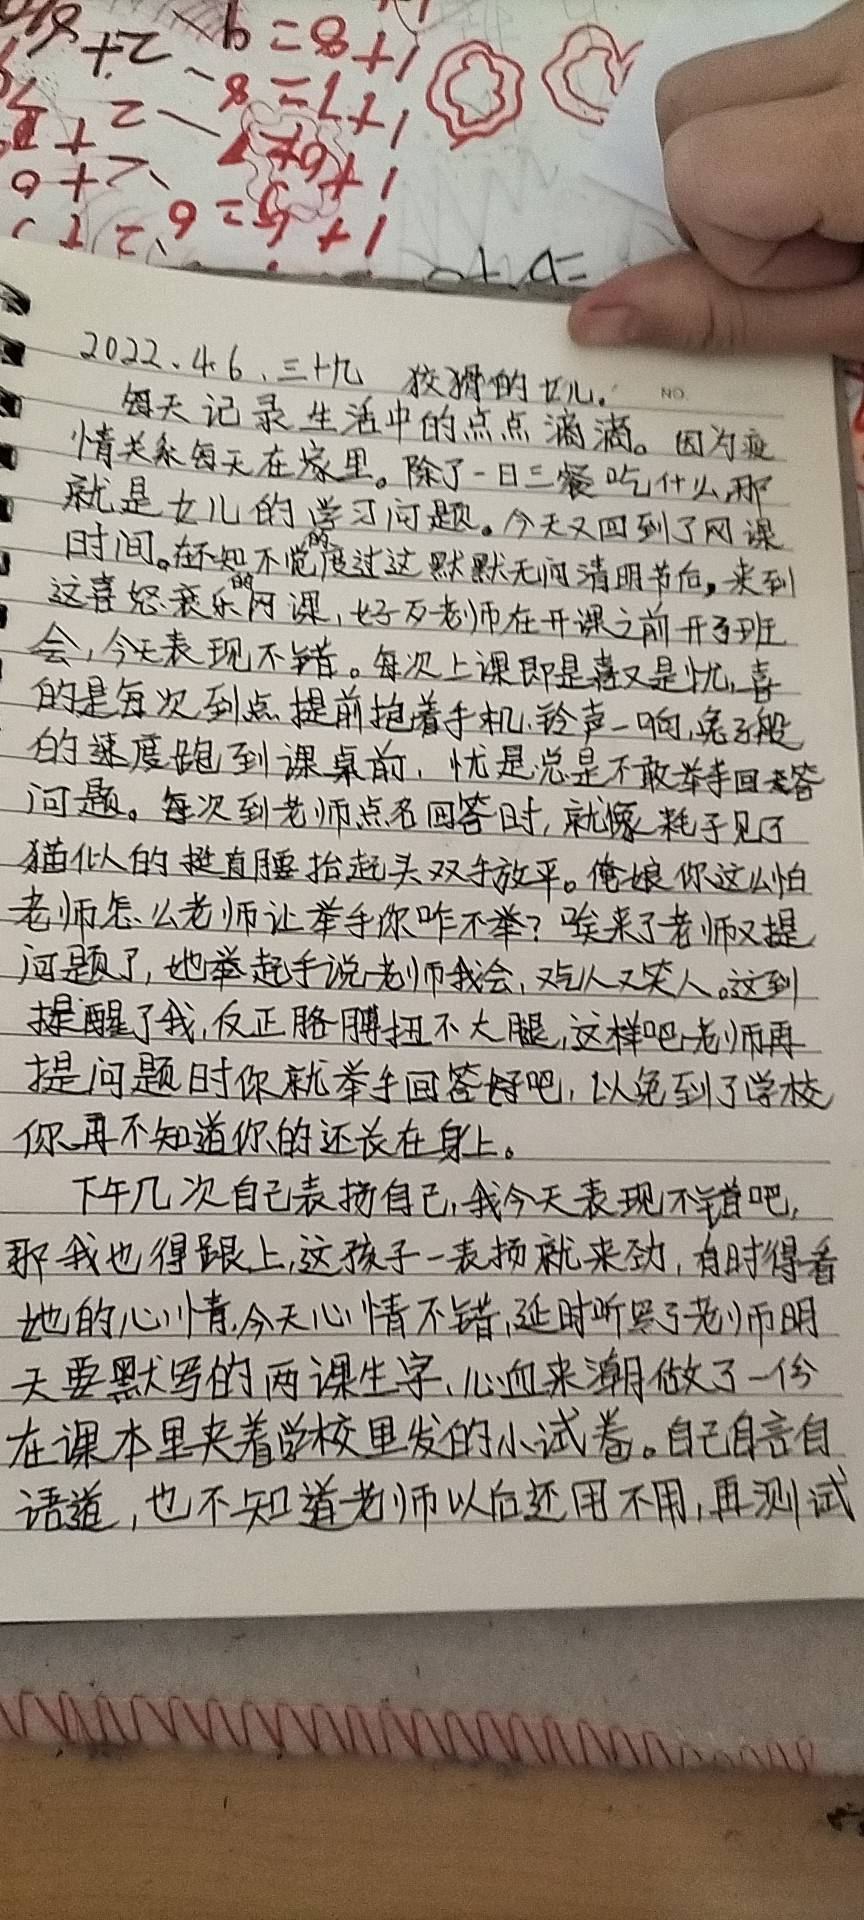 1+8=9
1+7=8
1+6=7
1+5=6
2022.4.6.三十九 狡猾的女儿.
NO.
每天记录生活中的点点滴滴。因为疫
情关系每天在家里。除了一日三餐吃什么,那
就是女儿的学习问题。今天又回到了网课
时间。在不知不觉的度过这默默无闻清明节后,来到
这喜怒哀乐的网课,好歹老师在开课之前开了班
会,今天表现不错。每次上课即是喜又是忧,喜
的是每次到点提前抱着手机.铃声一响,兔子般
的速度跑到课桌前,忧是总是不敢举手回答
问题。每次到老师点名回答时,就像耗子见了
猫似人的挺直腰抬起头双手放平。俺娘你这么怕
老师怎么老师让举手你咋不举?唉来了老师又提
问题了,她举起手说老师我会,又气人又笑人。这到
提醒了我,反正胳膊扭不大腿,这样吧,老师再
提问题时你就举手回答好吧,以免到了学校
你再不知道你的还长在身上。
下午几次自己表扬自己,我今天表现不错吧,
那我也得跟上,这孩子一表扬就来劲,有时得看
她的心情.今天心情不错,延时听写了老师明
天要默写的两课生字、心血来潮做了一份
在课本里夹着学校里发的小试卷。自己自言自
语道,也不知道老师以后还用不用,再测试